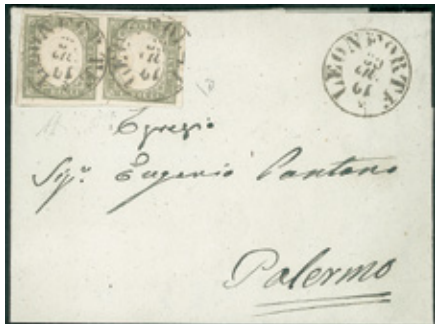 LEONFORTE
19
Egregio
Sigr. Eugenio Cantano
Palermo